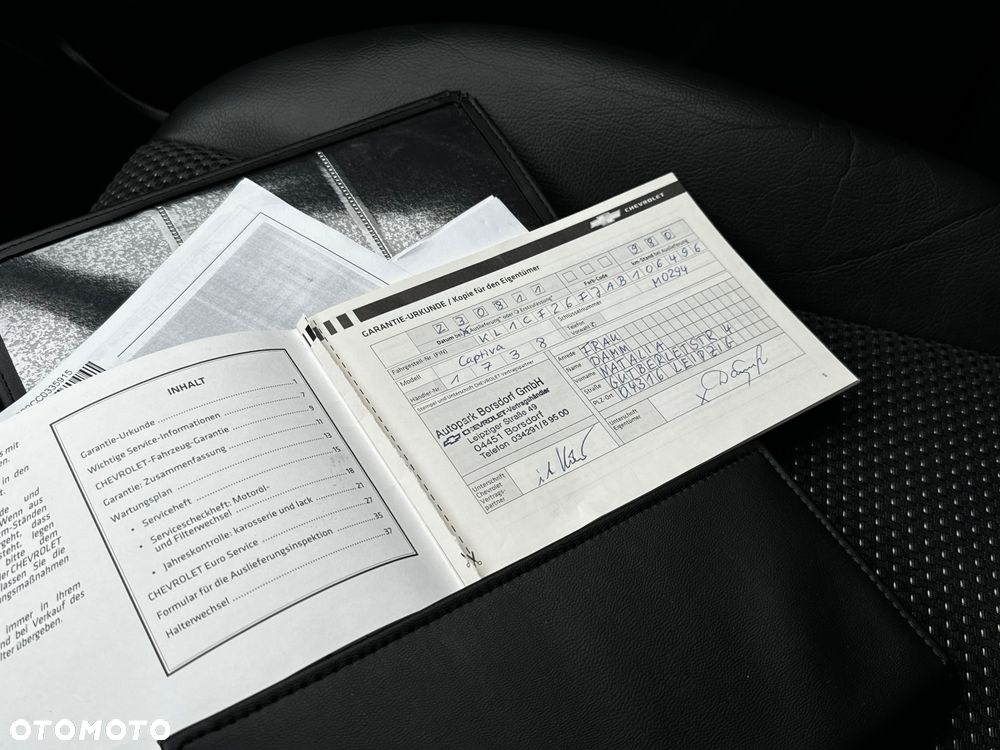 s mit
in den
und
Wenn aus
m-Ständen
ergeht, dass
steht, legen
bitte dem
der CHEVROLET
lassen Sie die
ungsmaßnahmen
immer in Ihrem
nd bei Verkauf des
lter übergeben.
INHALT
Garantie-Urkunde 7
Wichtige Service-Informationen 9
CHEVROLET-Fahrzeug-Garantie 11
Garantie: Zusammenfassung 13
Wartungsplan 15
• Serviceheft 18
• Servicescheckheft: Motoröl-
und Filterwechsel 21
• Jahreskontrolle: karosserie und lack 27
CHEVROLET Euro Service 35
Formular für die Auslieferungsinspektion 37
Halterwechsel
CHEVROLET
GARANTIE-URKUNDE / Kopie für den Eigentümer
2 3 0 8 1 1
9 8 0
Datum bei Auslieferung* oder Erstzulassung*
Farb-Code
km-Stand bei Auslieferung
Fahrgestell-Nr. (FIN) KL1CF26F7AB106496
Modell Captiva
Schlüsselnummer M0294
Händler Nr. 1 7 3 8
Telefon
Vorwahl
Stempel und Unterschrift CHEVROLET Vertragspartner
Autopark Borsdorf GmbH
CHEVROLET-Vertragshändler
Leipziger Straße 49
04451 Borsdorf
Telefon 034291/8 95 00
Anrede FRAU
Name DAMM
Vorname NATALIA
Straße GUTBERLETSTR 4
PLZ-Ort 04316 LEIPZIG
Unterschrift
Chevrolet
Vertrags-
partner
Unterschrift
Eigentümer
OTOMOTO